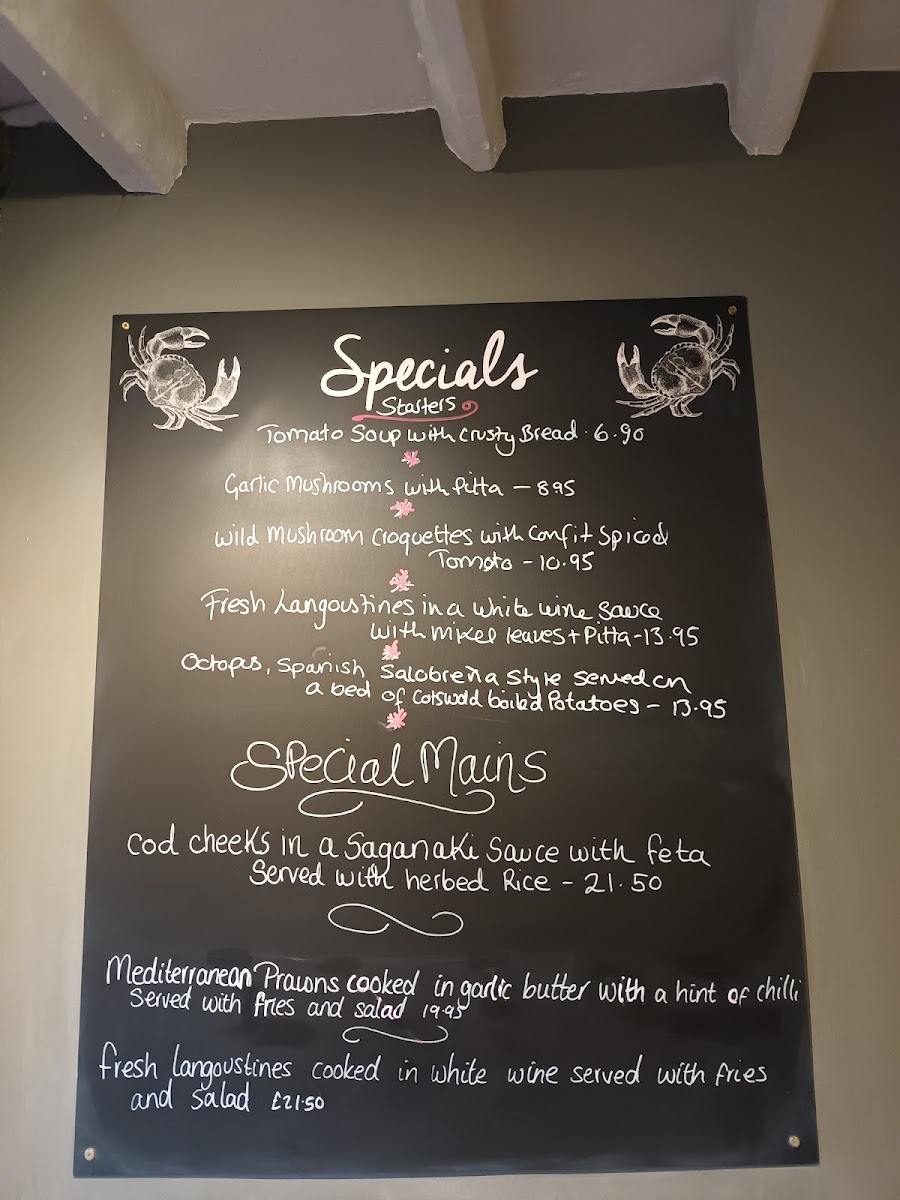 Specials
Starters
Tomato Soup with Crusty Bread - 6.90
Garlic Mushrooms with Pitta - 8.95
Wild Mushroom Croquettes with Confit Spiced
Tomato - 10.95
Fresh Langoustines in a white wine Sauce
with mixed leaves + Pitta - 13.95
Octopus, Spanish, Salobreña Style Served on
a bed of Cotswold boiled Potatoes - 13.95
Special Mains
Cod cheeks in a Saganaki Sauce with feta
Served with herbed Rice - 21.50
Mediterranean Prawns cooked in garlic butter with a hint of chilli
Served with fries and salad 19.95
fresh langoustines cooked in white wine served with fries
and salad £21.50